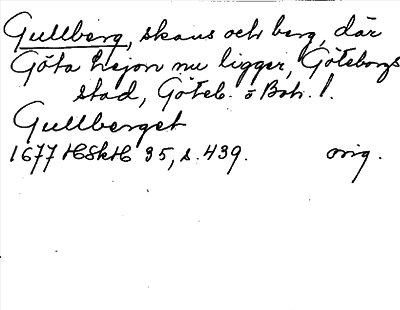 Gullberg, skans och berg, där
Göta lejon nu ligger, Göteborgs
stad, Göteb. o Boh. l.
Gullberget
1677 HSkH 35, s. 439. orig.